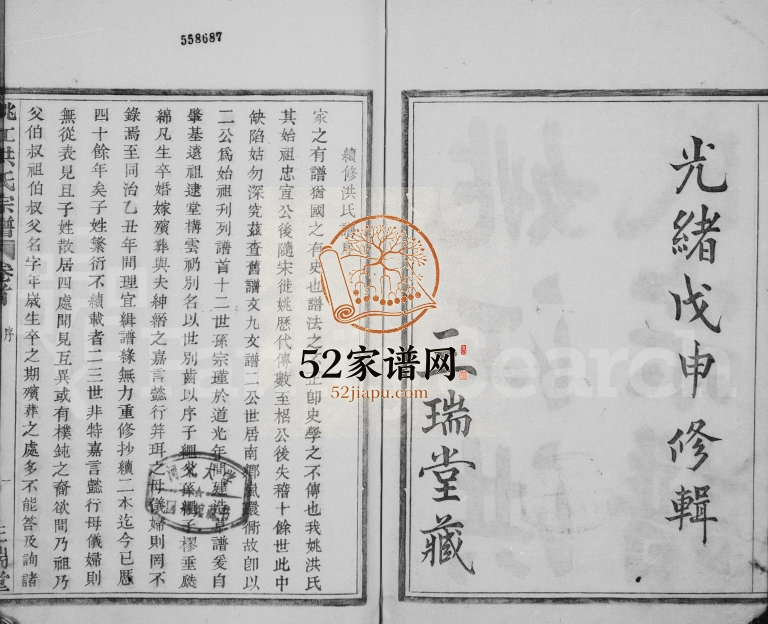 558687
光緒戊申修輯
二瑞堂藏
續修洪氏
家之有譜猶國之有史也譜法之 正卽史學之不傳也我姚洪氏
其始祖忠宣公後隨宋徙姚歷代傳數至 公後失稽十餘世此中
缺陷姑勿深究茲查舊譜文九文譜二公世居南鄉 故卽以
二公爲始祖刊列譜首十二世孫宗瑾於道光年間建造 譜爰自
肇基遠祖建堂構雲礽別名以世別齒以序子繩 孫 子樛垂 
綿凡生卒婚嫁殯葬與夫紳縉之嘉言懿行笄珥之母儀婦則罔不
錄焉至同治乙丑年間理宜緝譜緣無力重修抄續二本迄今已歷
四十餘年矣子姓繁衍不續載者二三世非特嘉言懿行母儀婦則
無從表見且子姓散居四處聞見互異或有樸鈍之裔欲問乃祖乃
父伯叔祖伯叔父名字年歲生卒之期殯葬之處多不能答及詢諸
姚江洪氏宗譜 卷首 序 一 二瑞堂
52家谱网
52jiapu.com
Search